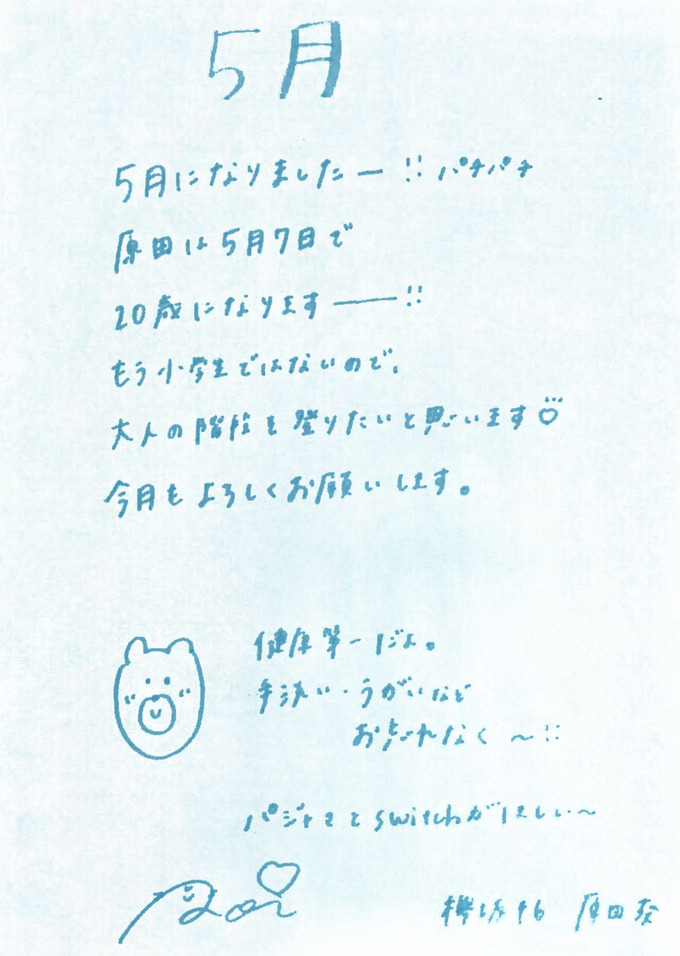 5月
5月になりましたー!! パチパチ
原田は5月7日で
20歳になります――!!
もう小学生ではないので、
大人の階段を登りたいと思います♡
今月もよろしくお願いします。
健康第一だよ。
手洗い・うがいなど
お忘れなく 〜!!
パジャマとswitchがほしい〜
Aoi
欅坂46 原田葵